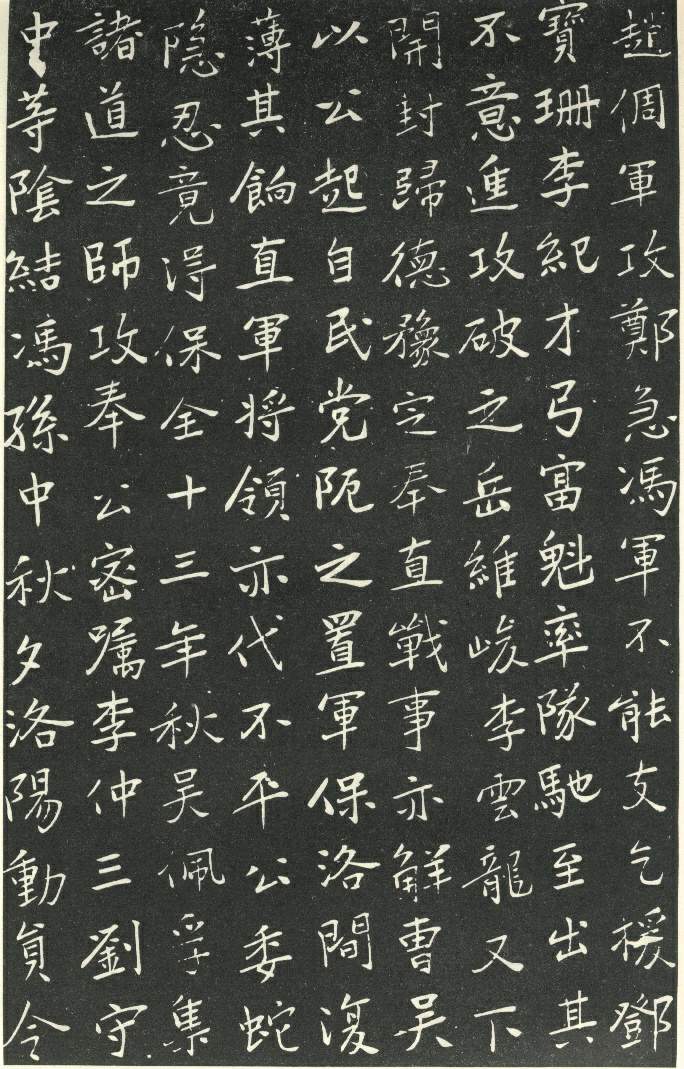 趙倜軍攻鄭急馮軍不能支乞援鄧
寶珊李紀才弓富魁率隊馳至出其
不意進攻破之岳維峻李雲龍又下
開封歸德豫定奉直戰事亦解曹吳
以公起自民党阨之置軍保洛間復
薄其餉直軍將領亦代不平公委蛇
隐忍竟得保全十三年秋吴佩孚集
諸道之師攻奉公密嘱李仲三劉守
中等陰結馮孫中秋夕洛陽動員令